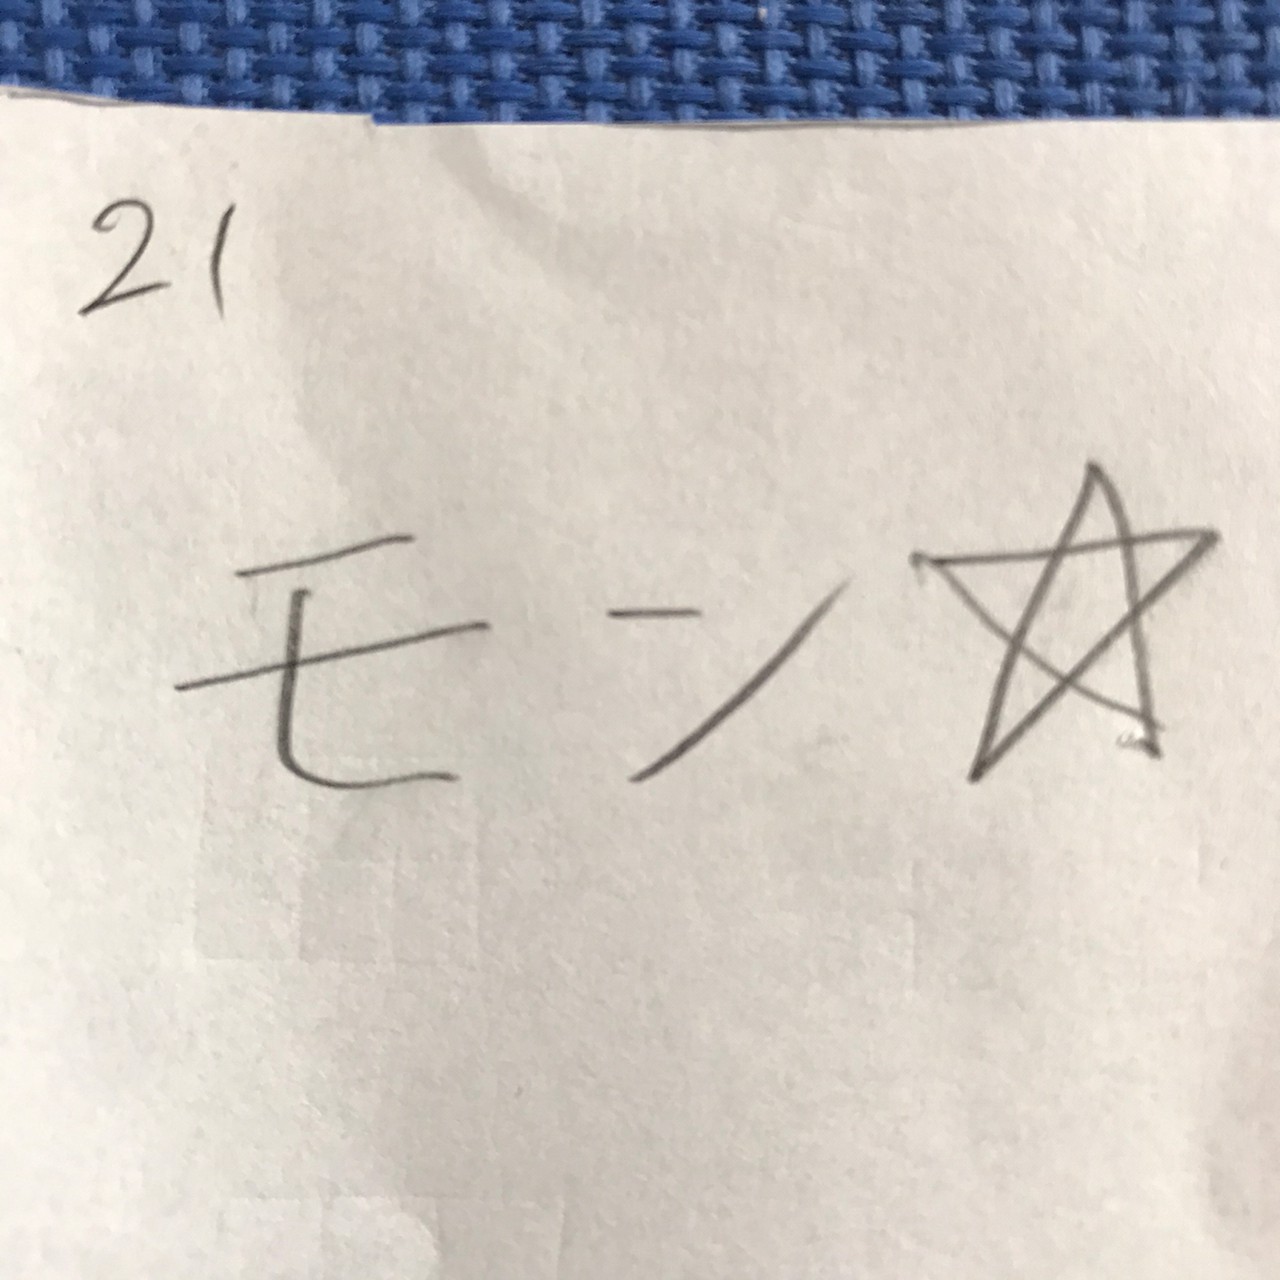 21
モン☆